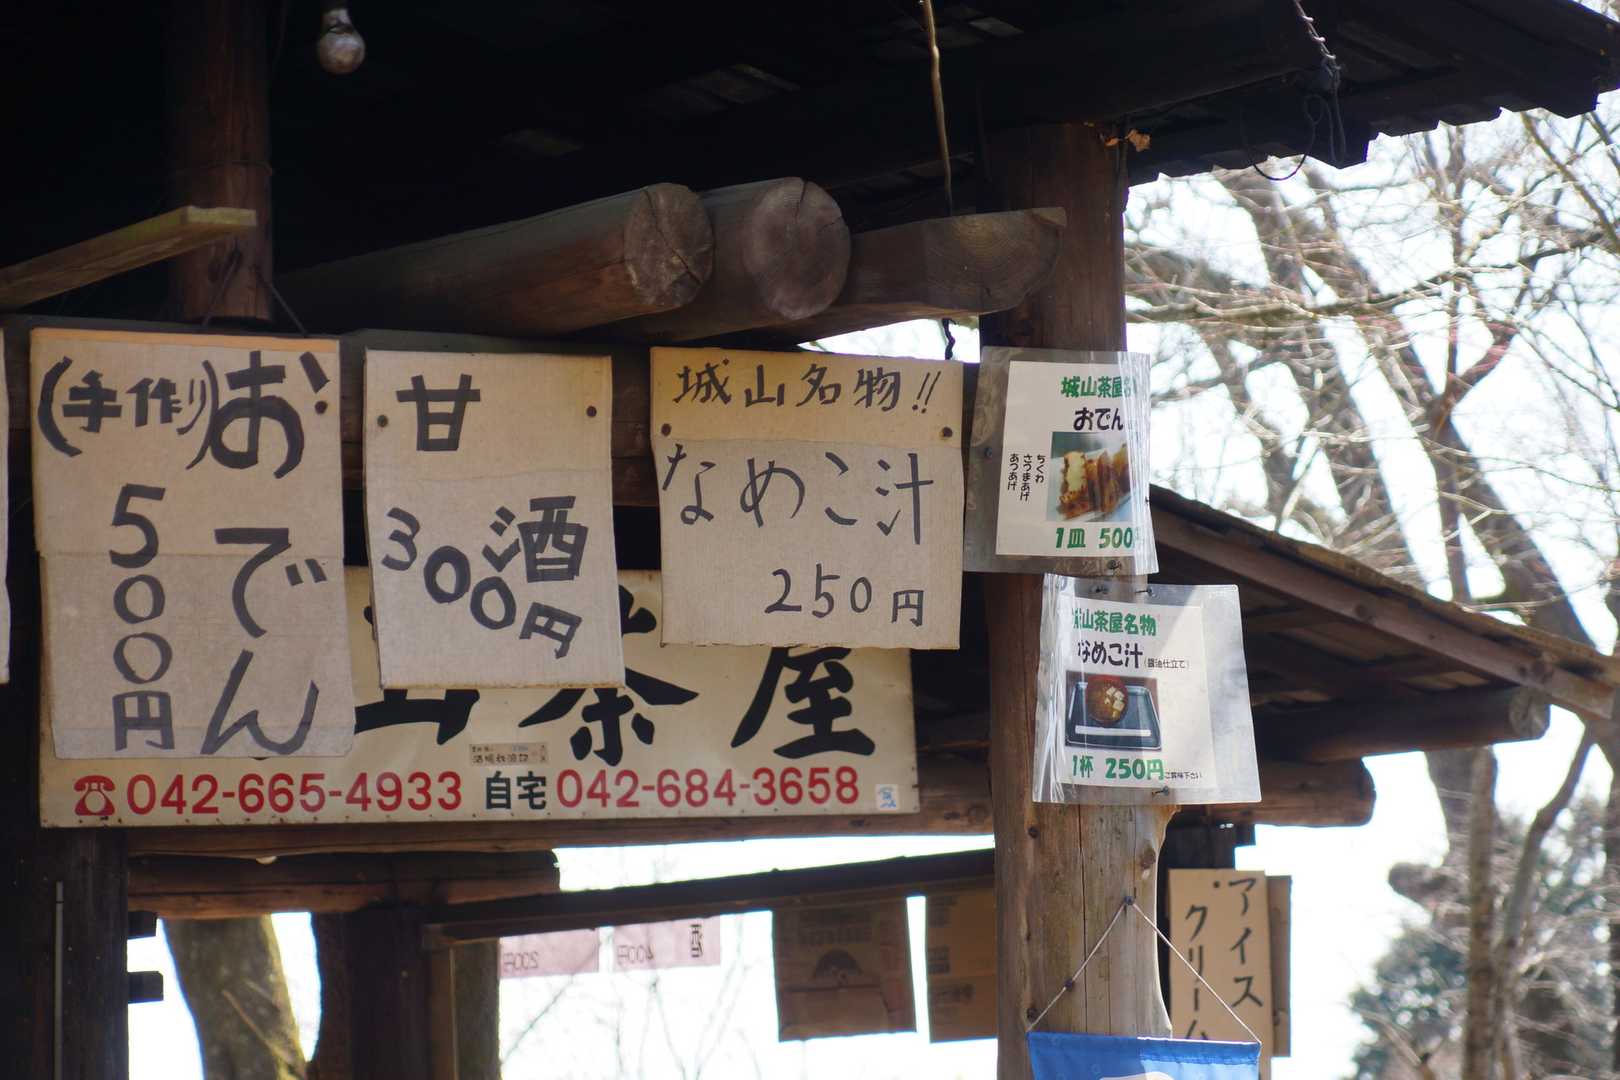 (手作り)おでん
500円
甘酒
300円
城山名物!!
なめこ汁
250円
山茶屋
☎042-665-4933 自宅042-684-3658
城山茶屋名
おでん
ちくわ
さつまあげ
あつあげ
1皿 500
城山茶屋名物
なめこ汁(醤油仕立て)
1杯 250円ご賞味下さい
アイス
・クリーム
酒
400円
200円